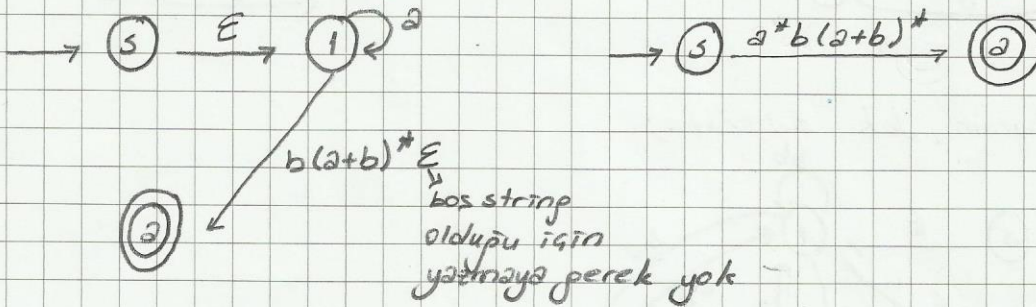 s ε 1 a
s a*b(a+b)* a
b(a+b)* ε
a
boş string
olduğu için
yazmaya gerek yok